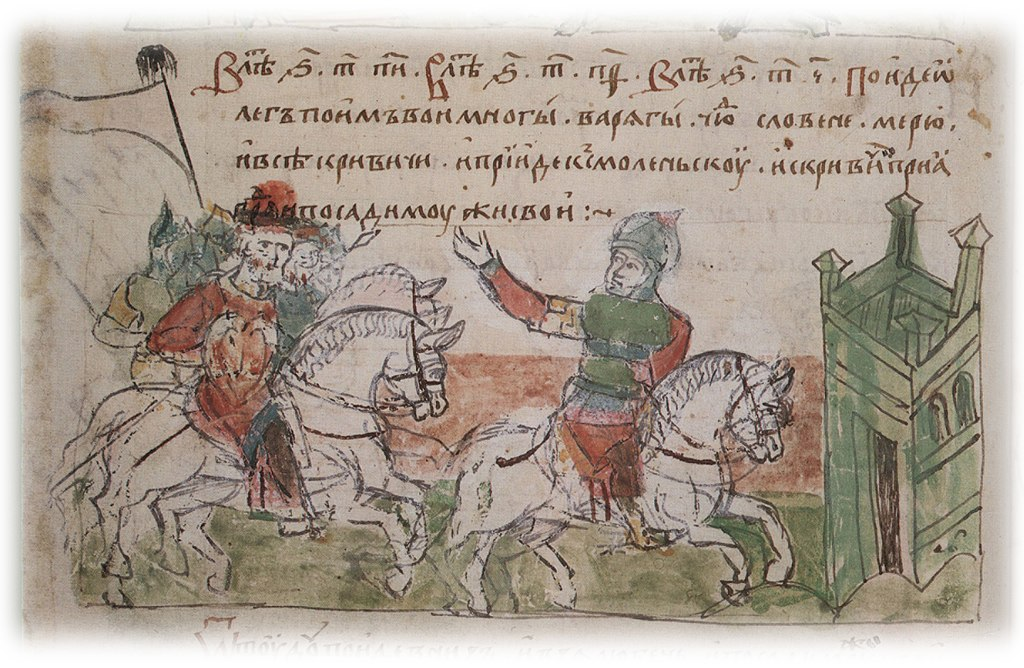 В лѣт҇ ѕ҃. т҃. п҃и. В лѣт҇ ѕ҃. т҃. п҃ѳ. В лѣт҇ ѕ҃. т҃. ч҃. Поиде ѡ
легъ поимъ вои многы. варягы. чюⷣ словене. мерю.
и всѣ кривичи. и прїиде къ смоленьскоу. и с кривичи прия
граⷣ и посади моужи свои :~